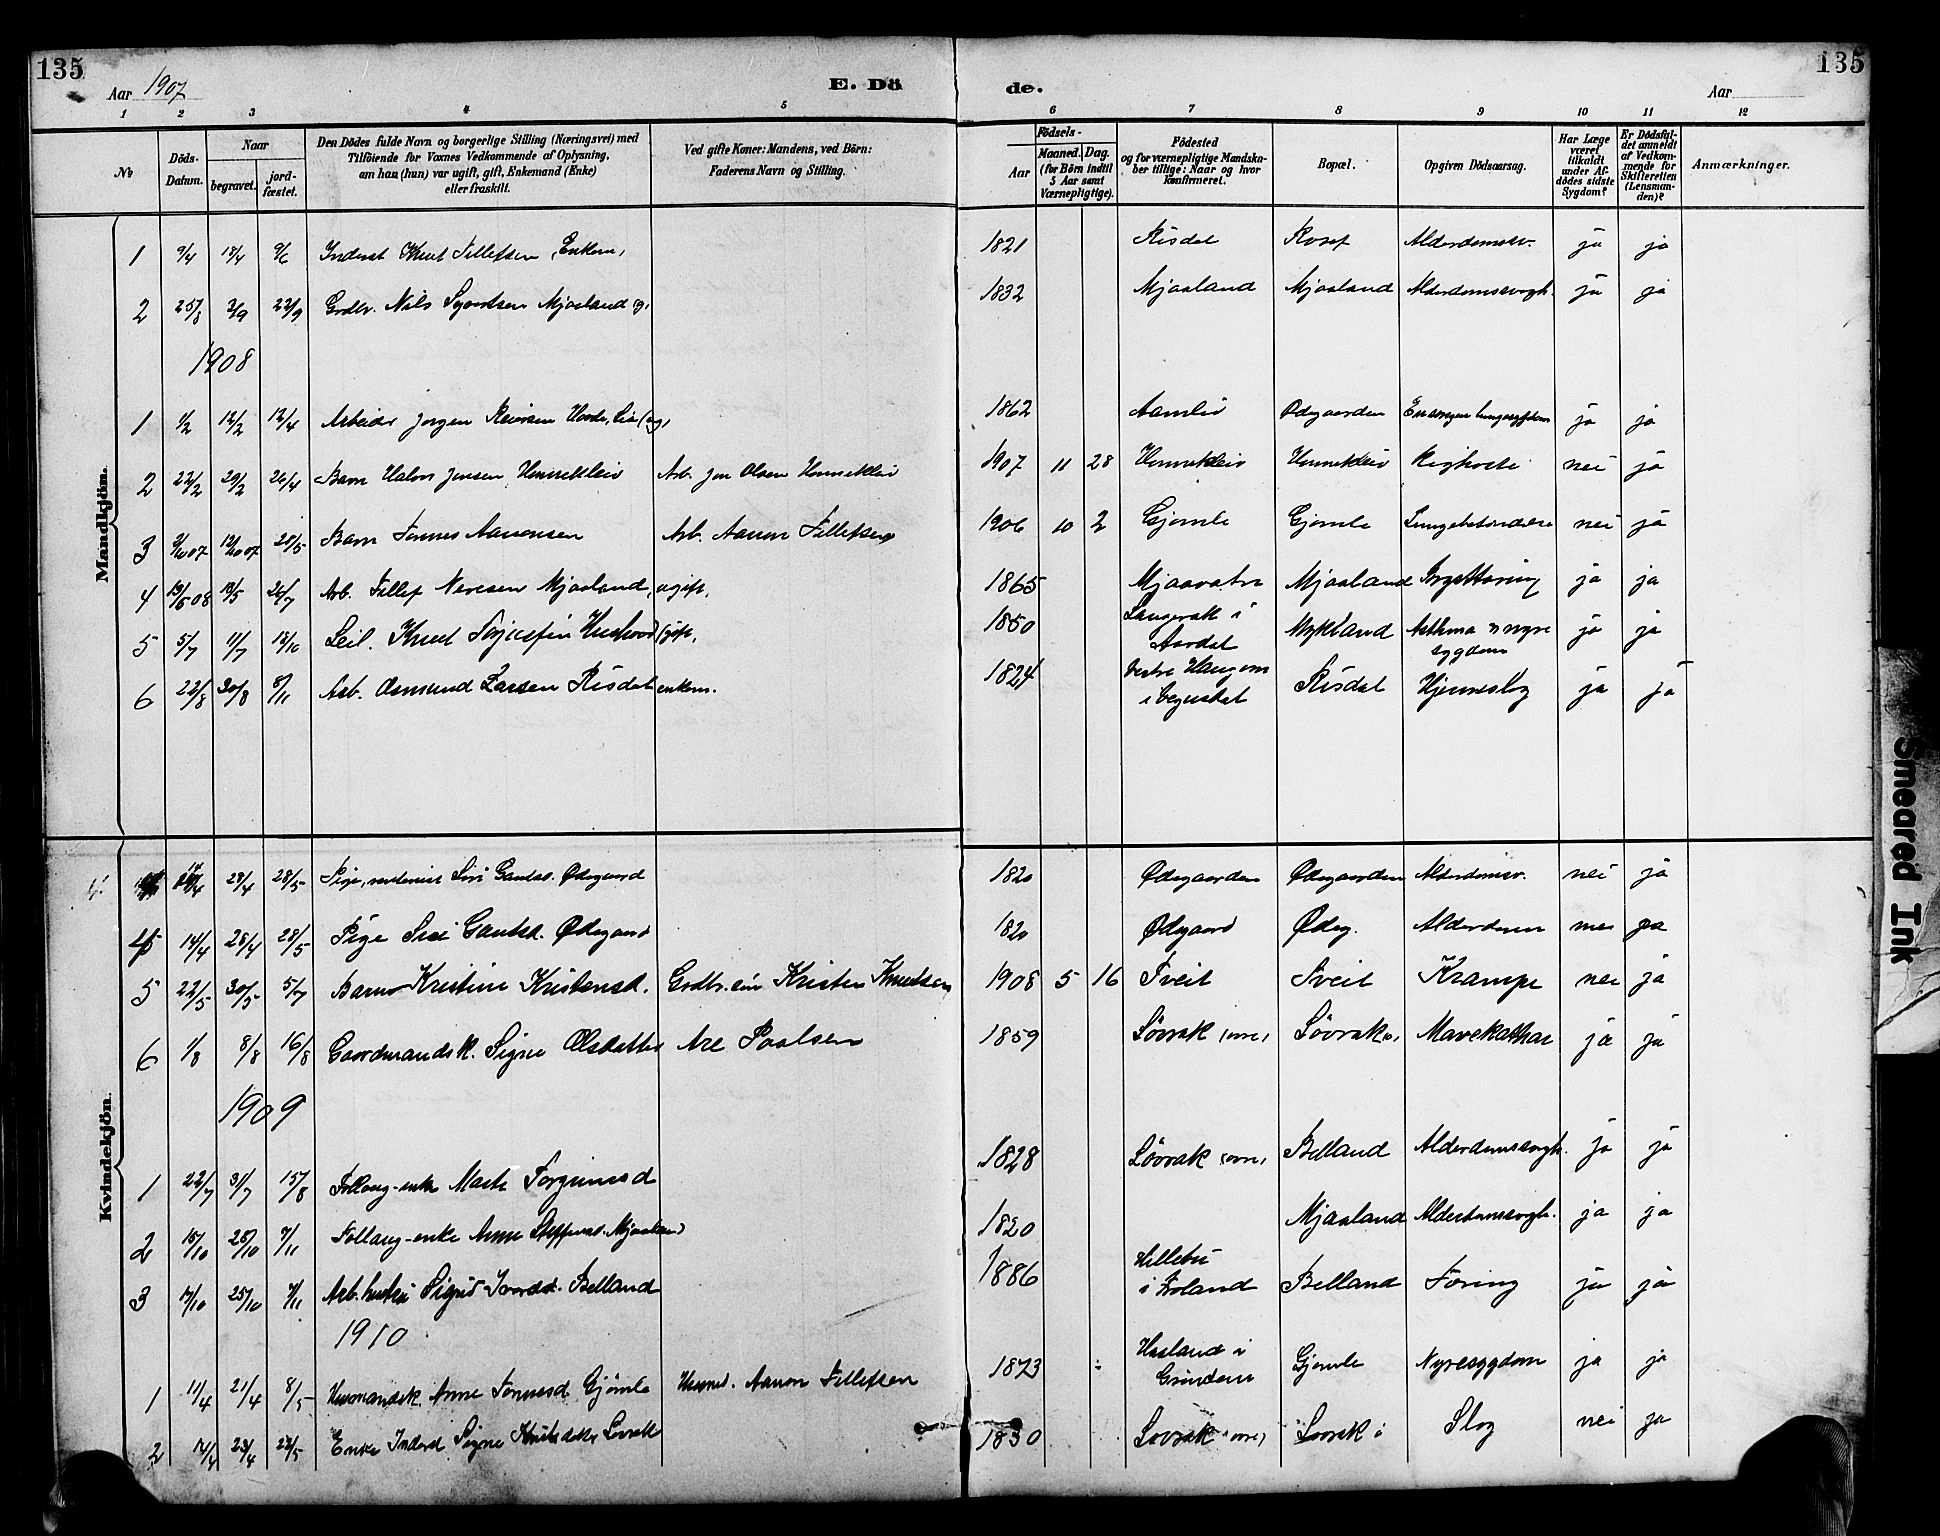 135
Aar 1907
E. Dö
de.
Aar
135
1 2 3 4 5 6 7 8 9 10 11 12
№
Döds-Datum.
Naar
begravet.
jord-fæstet.
Den Dödes fulde Navn og borgerlige Stilling (Næringsvei) med
Tilföiende for Voxnes Vedkommende af Oplysning,
om han (hun) var ugift, gift, Enkemand (Enke)
eller fraskilt.
Ved gifte Koner: Mandens, ved Börn:
Faderens Navn og Stilling.
Födsels-
Aar
Maaned. Dag.
(for Börn indtil
5 Aar samt
Værnepligtige).
Födested
og for værnepligtige Mandska-
ber tillige: Naar og hvor
konfirmeret.
Bopæl.
Opgiven Dödsaarsag.
Har Læge
været
tilkaldt
under Af-
dödes sidste
Sygdom?
Er Dödsfal-
det anmeldt
af Vedkom-
mende for
Skifteretten
(Lensman-
den)?
Anmærkninger.
Mandkjön.
1 9/4 18/4 9/6 Inderst Knut Tellefsen, Enkem, 1821 Risdal Alderdomssv. ja ja
2 25/8 2/9 22/9 Grdbr. Nils Sjurdsen Mjaaland g, 1832 Mjaaland Mjaaland Alderdomssvagh. ja ja
1908
1 1/2 12/2 12/4 Arbeider Jørgen 1862 Aamli Ødegaarden ja ja
2 22/2 29/2 26/4 Barn Halvor Jensen Arb. Jon Olsen 1907 11 28 Kighoste nei ja
3 12/10 07 20/5 Barn Tønnes Aanonsen Arb. Aanon Tellefsen 1906 10 2 Gjømle Gjømle Lungebetændelse nei ja
4 13/5 08 19/5 26/7 Arb. Tellef Mjaaland, ugift, 1865 Mjaavatn Mjaaland Brysttæring ja ja
5 5/7 11/7 18/10 Leil. Knut gift, 1850 i Mykland Asthma og nyre
sygdom ja ja
6 22/8 30/8 8/11 Arb. Osmund Larsen Risdal enkem. 1824 Vestre
i Vegusdal Risdal Hjerneslag ja ja
Kvindekjön.
4. 14/4 28/4 28/5 Pige, Siri Gautsd. Ødegaard 1820 Ødegaarden Ødegaarden Alderdomssv. nei ja
4 14/4 28/4 28/5 Pige Siri Gautsd. Ødegaard 1820 Ødegaard Ødeg. Alderdom nei ja
5 22/5 30/5 5/7 Barn Kristine Kristensd. Grdbr. søn Kristen Knutsen 1908 5 16 Tveit Tveit Krampe nei ja
6 1/8 8/8 16/8 Gaardmandsk. Signe Olsdatter Are Paalsen 1859 Løvrak (øvre) Løvrak ø, Mavekathar ja ja
1909
1 22/7 31/7 15/8 Follaug-enke Marte Torgrimsd 1828 Løvrak (øvre) Belland Alderdomssvagh. ja ja
2 15/10 25/10 7/11 Follaug-enke Anne Steffensd. Mjaaland 1820 Mjaaland Alderdomssvagh. ja ja
3 17/10 25/10 7/11 Arb. hustru Sigrid Ivarsd. Belland 1886 Hillebu
i Froland Belland Tæring ja ja
1910
1 11/4 21/4 8/5 Husmandsk. Anne Tønnesd Gjømle Husmd. Aanon Tellefsen 1873 Hasland i
Gjømle Nyresygdom ja ja
2 17/4 23/4 22/5 Enke Inderst Signe Knutsdatter Løvrak 1830 Løvrak (øvre) Løvrak ø Slag nei ja
Smeared Ink